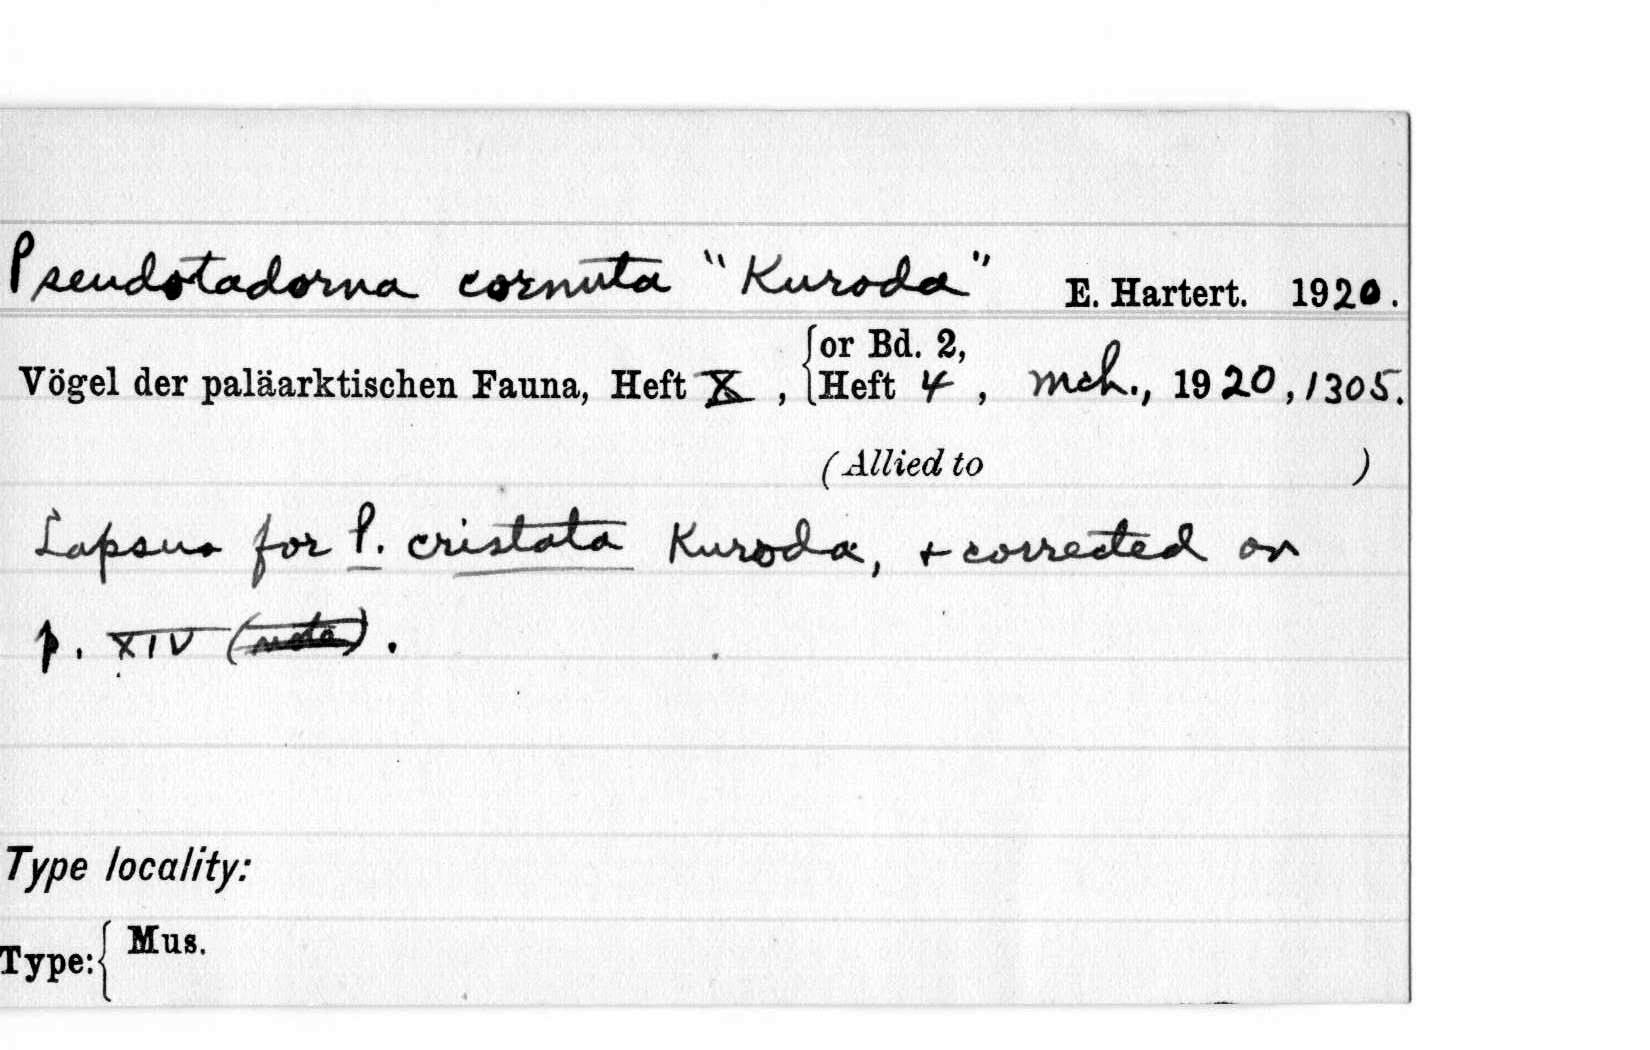 Pseudotadorna cornuta "Kuroda" E. Hartert. 1920.
Vögel der paläarktischen Fauna, Heft X, {or Bd. 2, Heft 4, Mch., 1920, 1305.
(Allied to )
Lapsus for P. cristata Kuroda, + corrected on
p. XIV (note).
Type locality:
Type: { Mus.